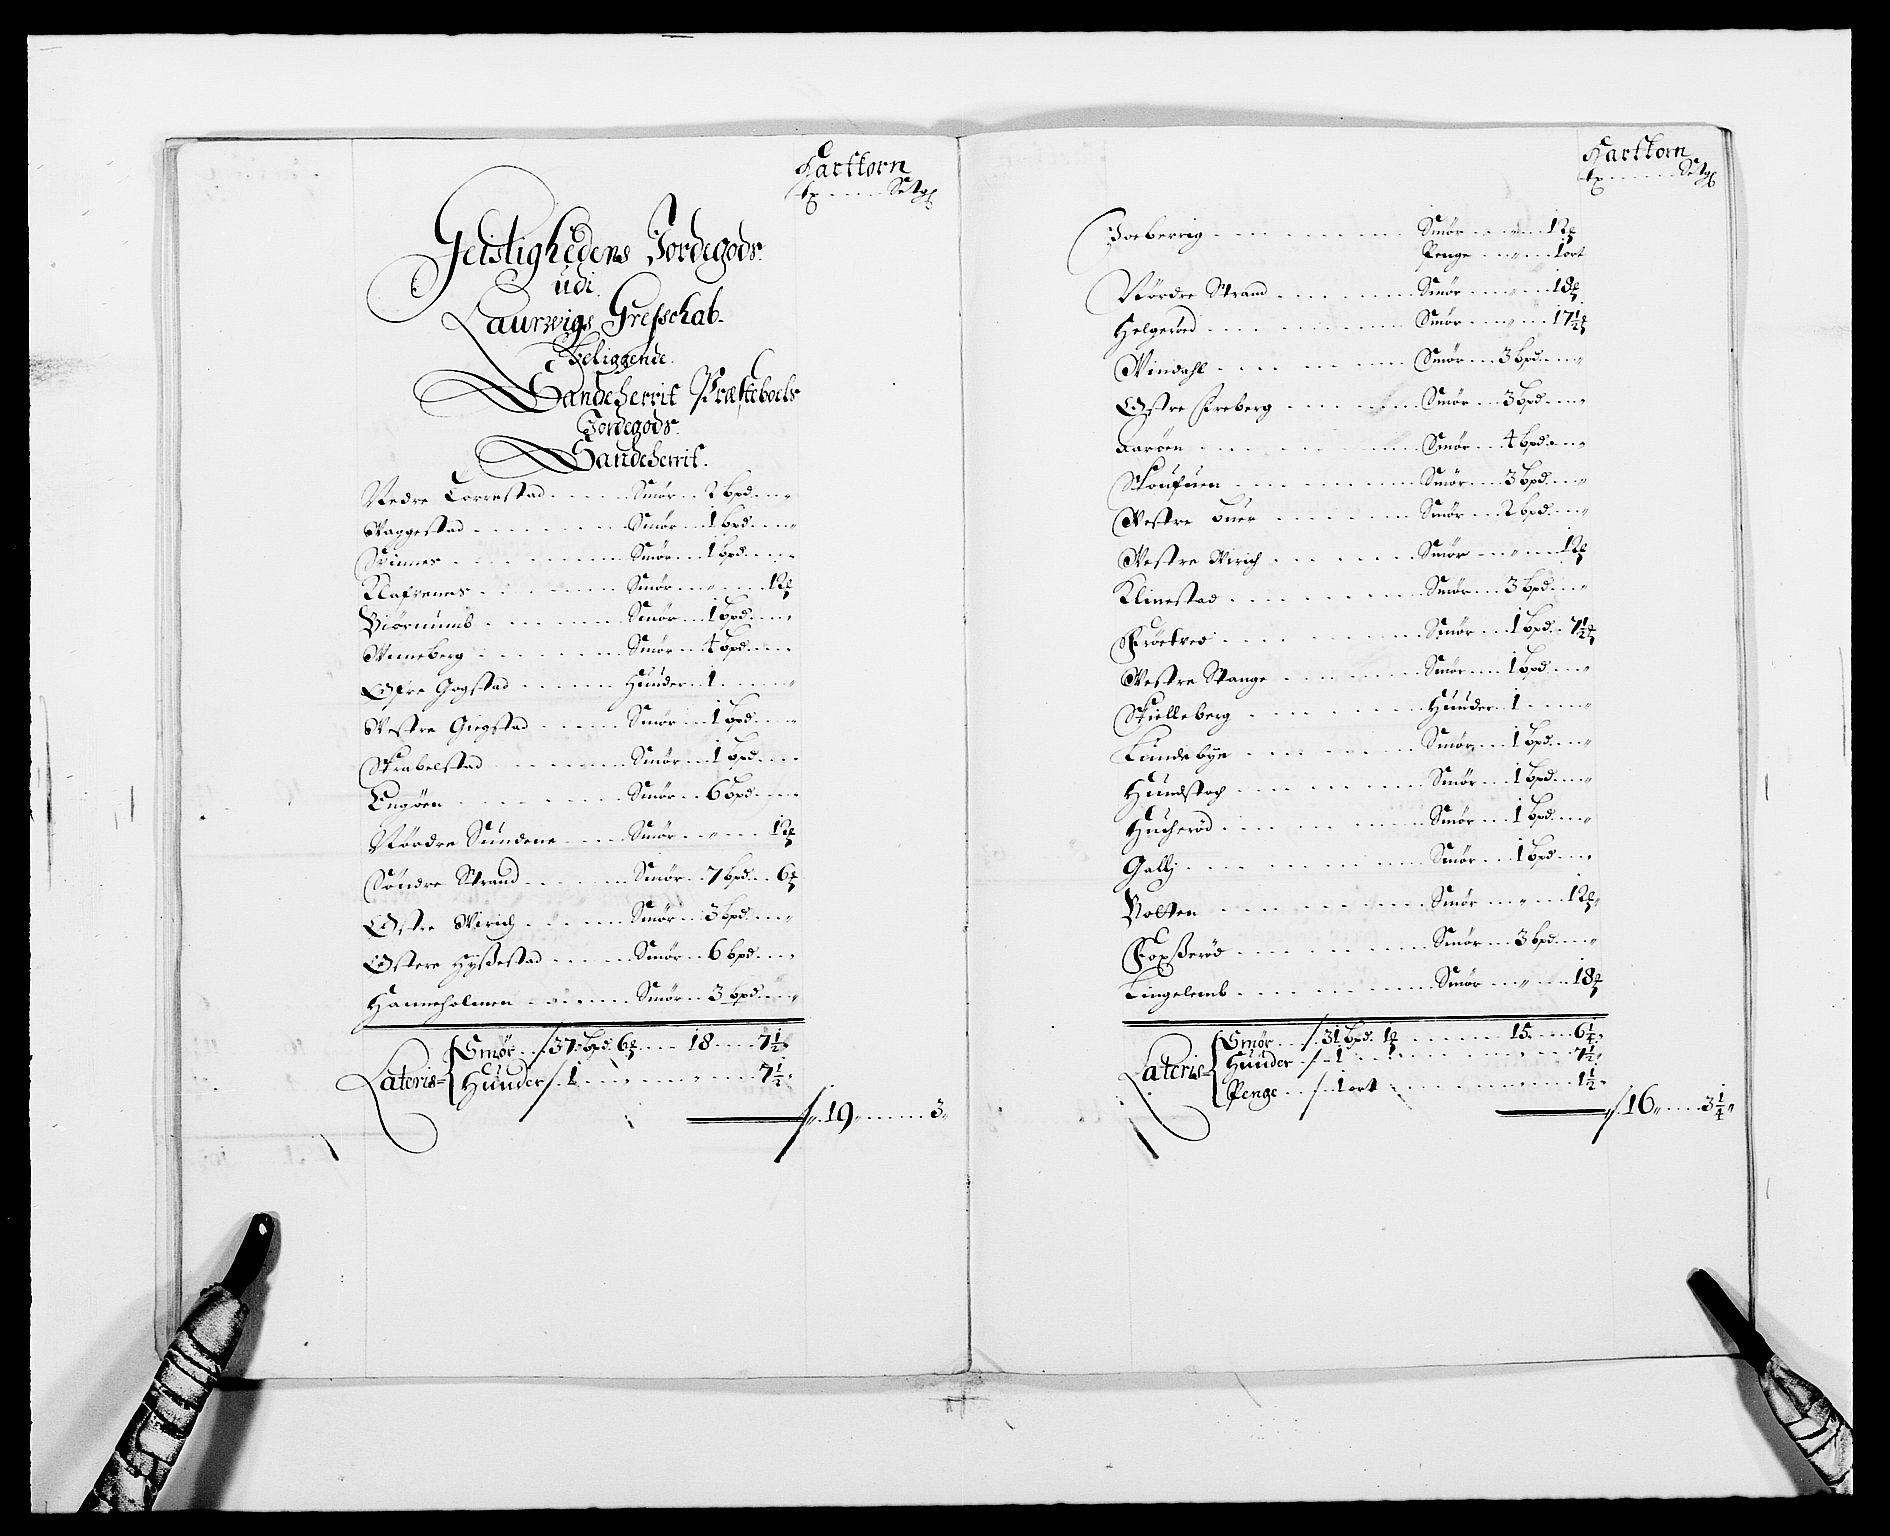 Harttorn
Geistlighedens Jordegods
udi
Laurwigs Grefschab
Beliggende
Sandeherrit Præsteboels
Jordegods
Sandeherrit
Nedre Torrestad Smør 2 bpd "
Waggestad Smør 1 bpd "
Virnnes Smør 1 bpd "
Klafrenes Smør " 12
Biørnumb Smør 1 bpd "
Winneberg Smør 4 bpd "
Øfre Gogstad Huuder 1 "
Westre Giogstad Smør 1 bpd "
Skrabelstad Smør 1 bpd
Engøen Smør 6 bpd
Nordre Sundene Smør " 12
Søndre Strand Smør 7 bpd 6
Østre Wirich Smør 3 bpd "
Østere Hyßestad Smør 6 bpd "
Hanneholmen Smør 3 bpd "
Lateris
Smør 37 bpd 6 18 7 1/2
Huuder 1 " " 7 1/2
19 3
Harttorn
Joeberrig Smør " 12
Penge " 1 ort
Nordre Strand Smør " 18
Helgeroed Smør " 17 1/2
Windahl Smør 3 bpd "
Østre Freberg Smør 3 bpd "
Farøen Smør 4 bpd "
Skoufuen Smør 3 bpd "
Westre Smør 2 bpd "
Westre Wirich Smør " 12
Klinestad Smør 3 bpd "
Frøetved Smør 1 bpd 7 1/2
Westre Stange Smør 1 bpd "
Skielleberg Huuder 1 "
Lundebye Smør 1 bpd "
Hundstoch Smør 1 bpd "
Hucherød Smør 1 bpd "
Gallj Smør 1 bpd
Bolten Smør " 12
Foxßerød Smør 3 bpd "
Lingelemb Smør " 18
Lateris
Smør 31 bpd 1 15 6 1/4
Huuder 1 " 7 1/2
Penge 1 ort " 1 1/2
16 3 1/4